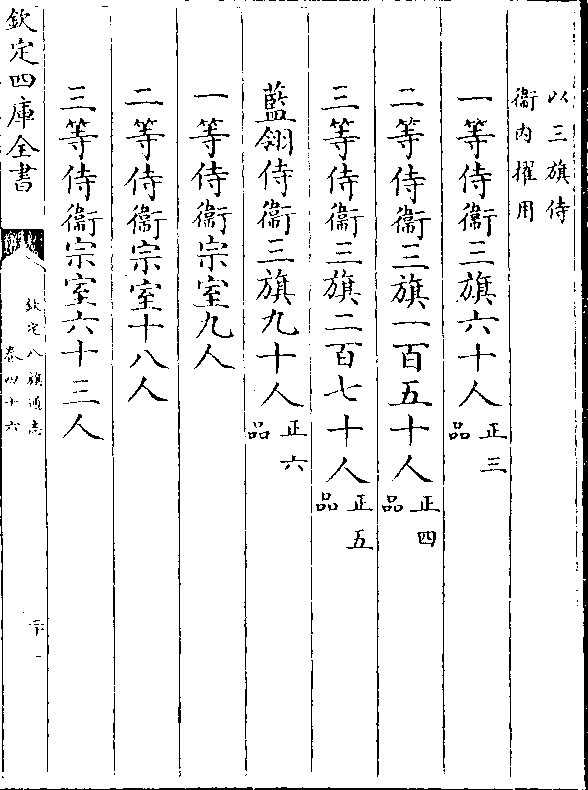 以三旗侍
衞内擢用
一等侍衞三旗六十人正三品
二等侍衞三旗一百五十人正四品
三等侍衞三旗二百七十人正五品
藍翎侍衞三旗九十人正六品
一等侍衞宗室九人
二等侍衞宗室十八人
三等侍衞宗室六十三人
欽定四庫全書
欽定八旗通志
卷四十六